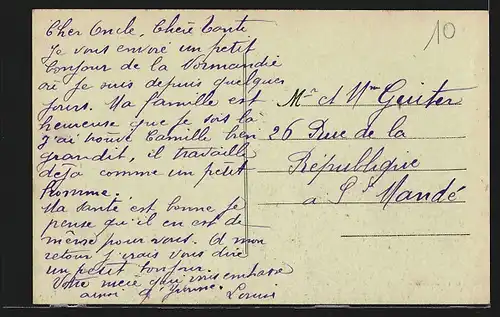 10
Cher Oncle, Chère Tante
Je vous envoie un petit
bonjour de la Normandie
où je suis depuis quelques
jours. Ma famille est
heureuse que je sois là
J'ai trouvé Camille bien
grandit, il travaille
déjà comme un petit
homme.
Ma santé est bonne je
pense qu'il en est de
même pour vous. A mon
retour j'irais vous dire
un petit bonjour.
Votre nièce qui vous embrasse
ainsi q'Yvonne. Louis
Mr et Mme Geuiter
26 Rue de la
République
a St Mandé